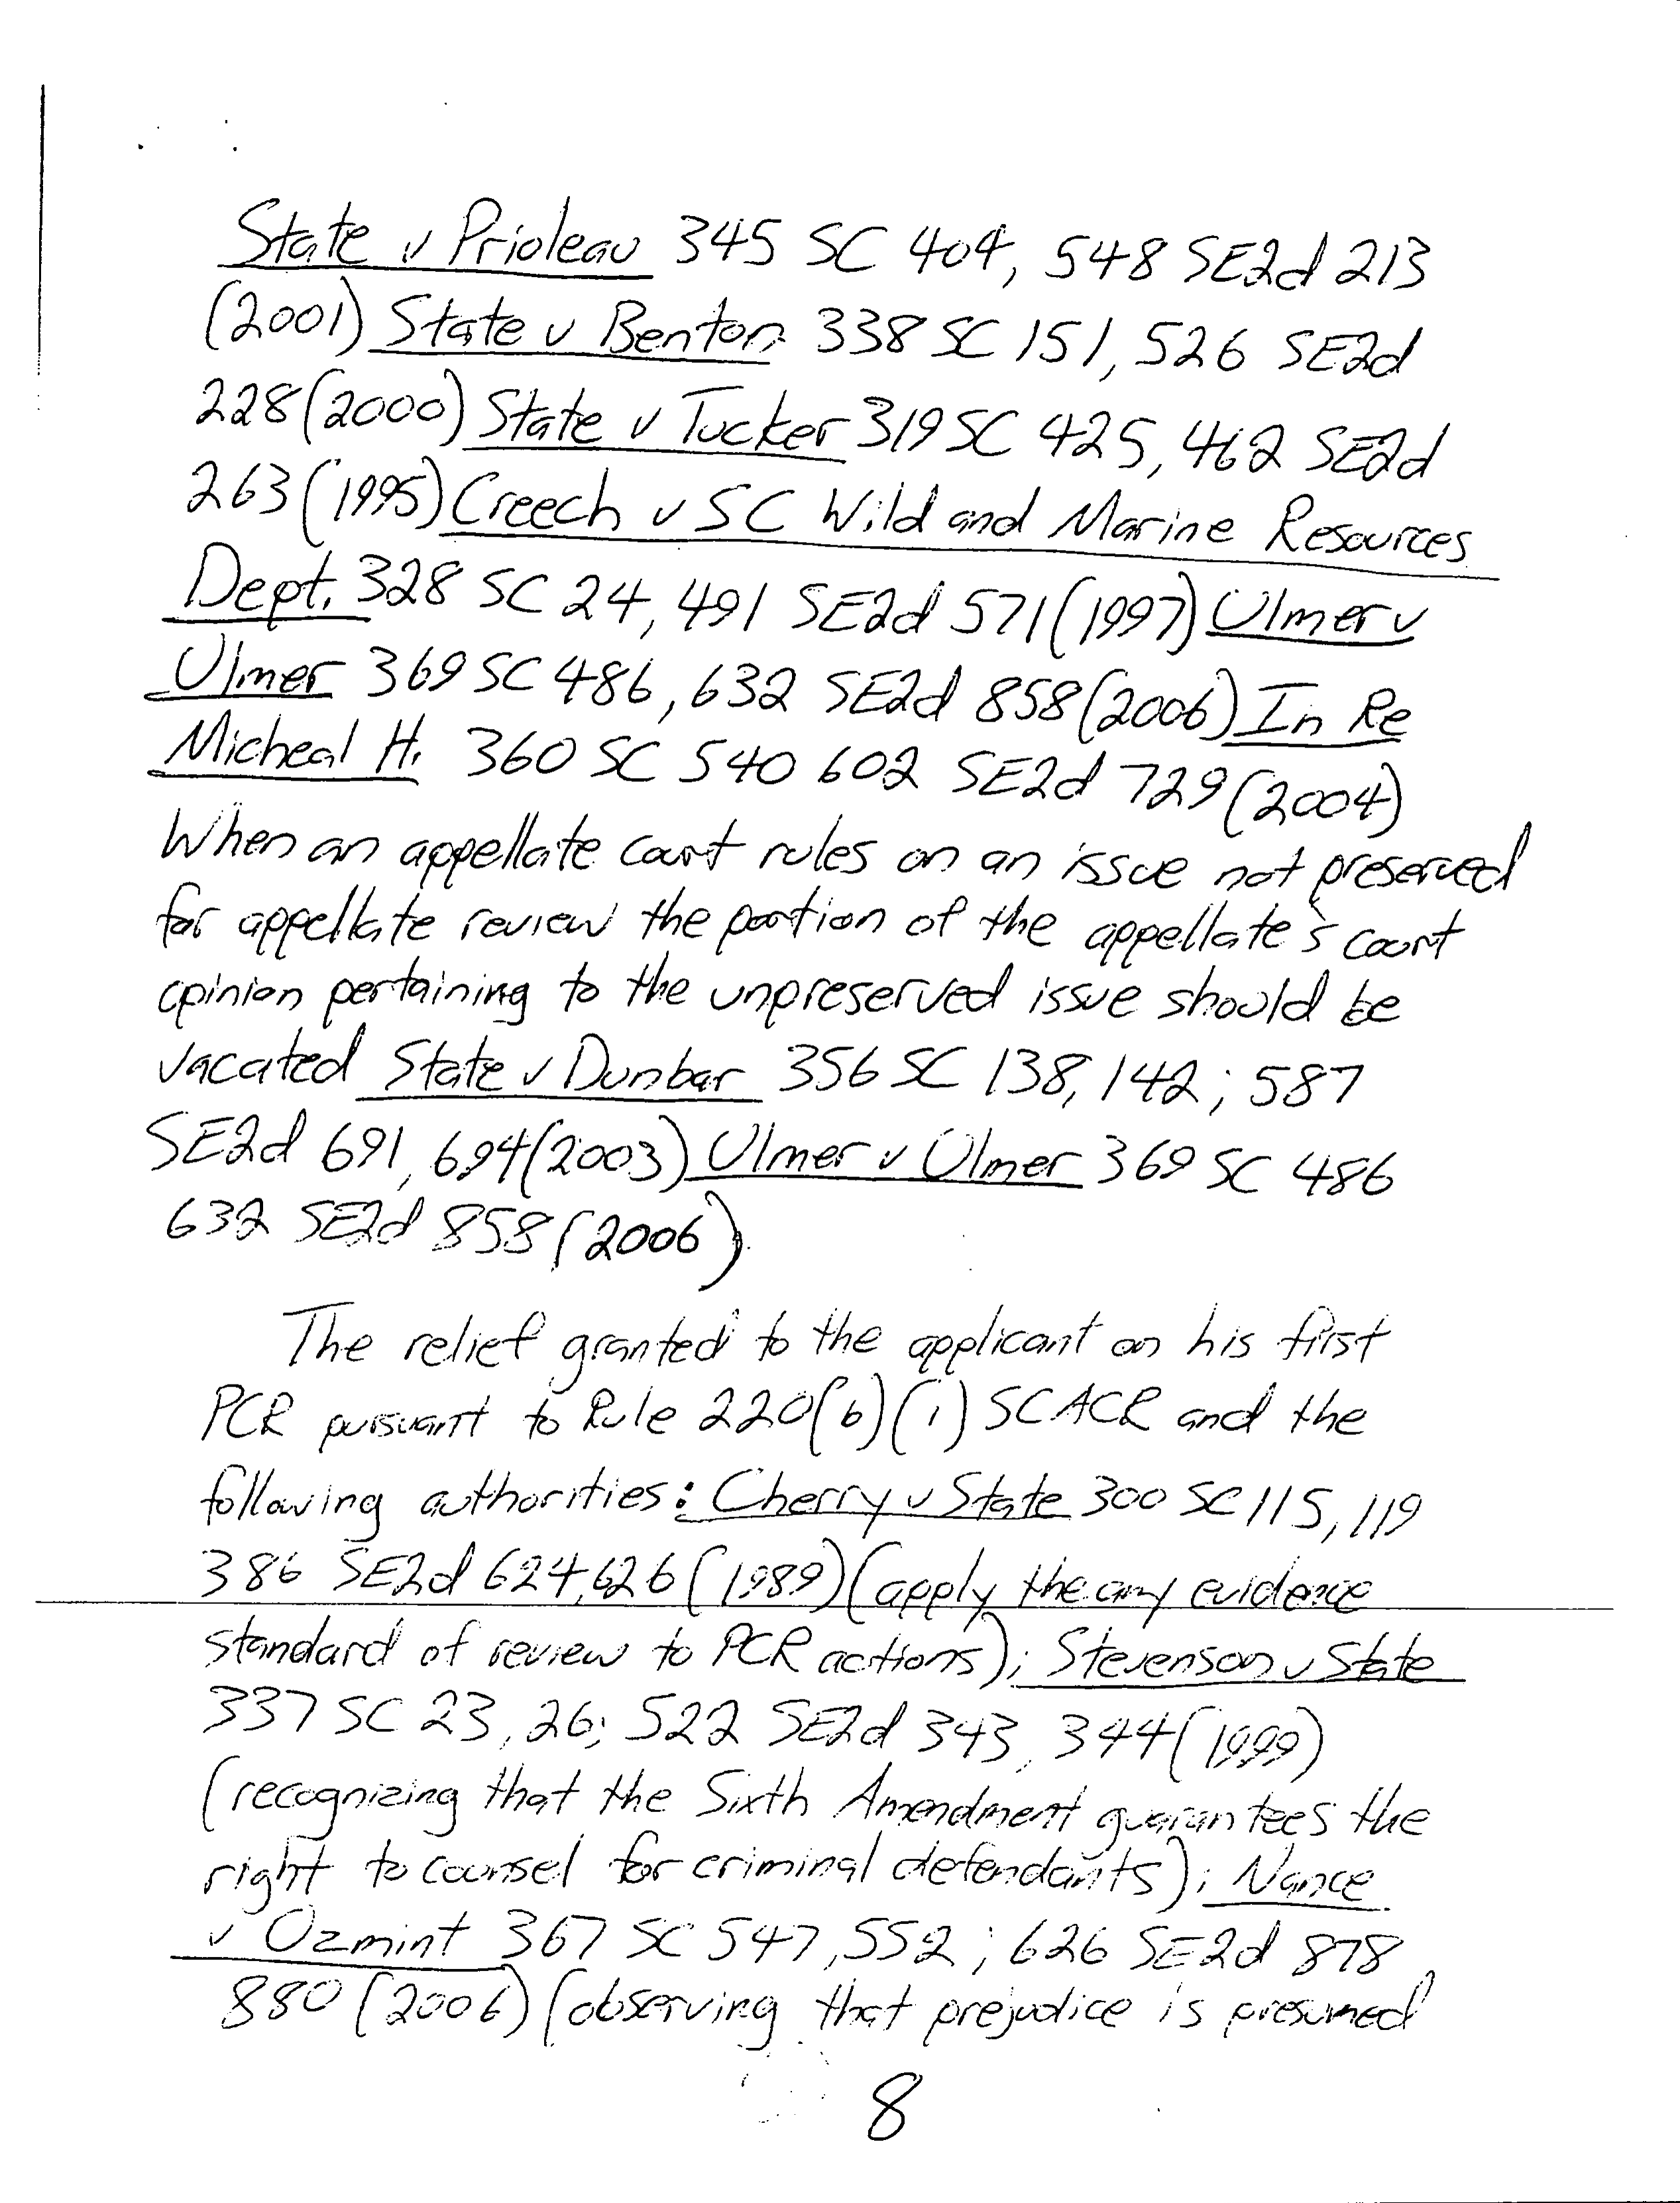 State v Prioleau 345 SC 404, 548 SE2d 213
(2001) State v Benton 338 SC 151, 526 SE2d
228 (2000) State v Tucker 319 SC 425, 462 SE2d
263 (1995) Creech v SC Wild and Marine Resources
Dept. 328 SC 24, 491 SE2d 571 (1997) Ulmer v
Ulmer 369 SC 486, 632 SE2d 858 (2006) In Re
Micheal H. 360 SC 540 602 SE2d 729 (2004)
When an appellate court rules on an issue not preserved
for appellate review the portion of the appellate's court
opinion pertaining to the unpreserved issue should be
vacated State v Dunbar 356 SC 138, 142; 587
SE2d 691, 694 (2003) Ulmer v Ulmer 369 SC 486
632 SE2d 858 (2006)
The relief granted to the applicant on his first
PCR pursuant to Rule 220(b)(1) SCACR and the
following authorities: Cherry v State 300 SC 115, 119
386 SE2d 624, 626 (1989) (apply the any evidence
standard of review to PCR actions); Stevenson v State
337 SC 23, 26; 522 SE2d 343, 344 (1999)
(recognizing that the Sixth Amendment guarantees the
right to counsel for criminal defendants); Nance
v Ozmint 367 SC 547, 552; 626 SE2d 878,
880 (2006) (observing that prejudice is presumed
8